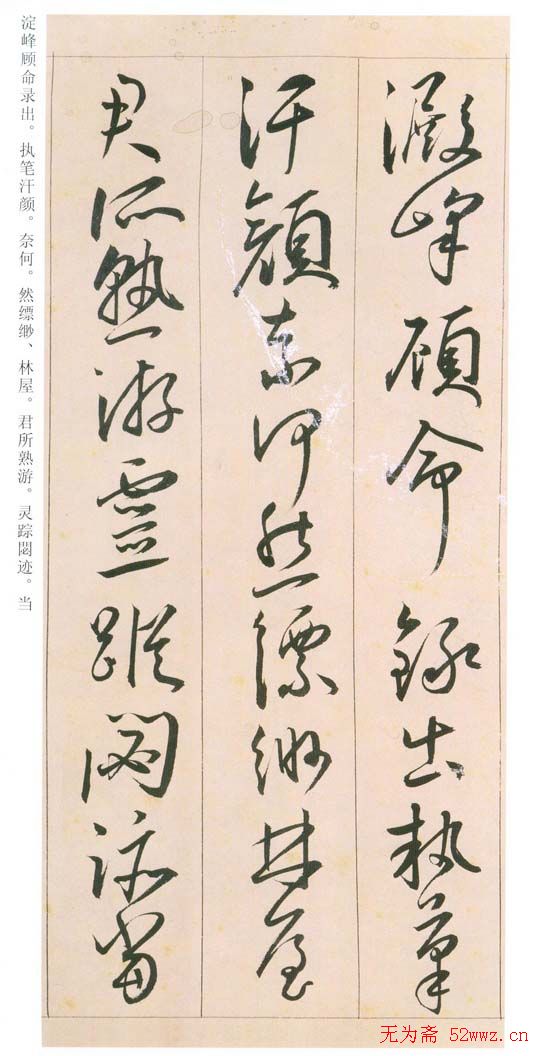 澱峰顾命録出执笔
汗颜奈何然缥缈林屋
君所熟游灵踪閟迹当
淀峰顾命录出。执笔汗颜。奈何。然缥缈、林屋。君所熟游。灵踪閟迹。当
无为斋 52wwz.cn